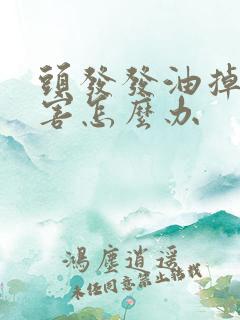 頭發發油掉
害怎麼办
鴻塵逍遥
未经同意禁止转载